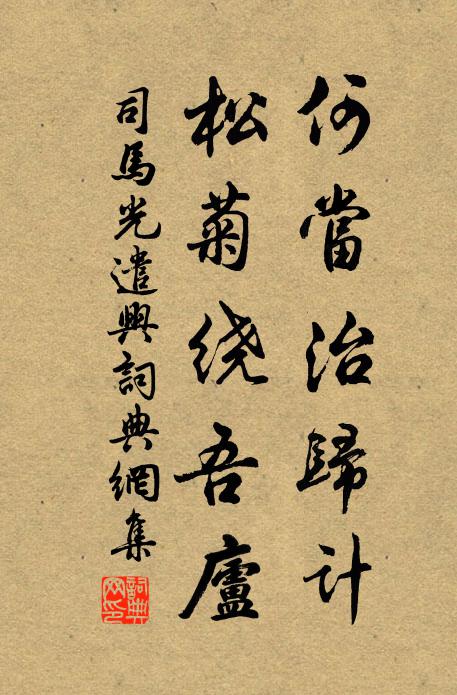 何當治歸计
松菊绕吾廬
司馬光遣興詞典網集
詞典
网印